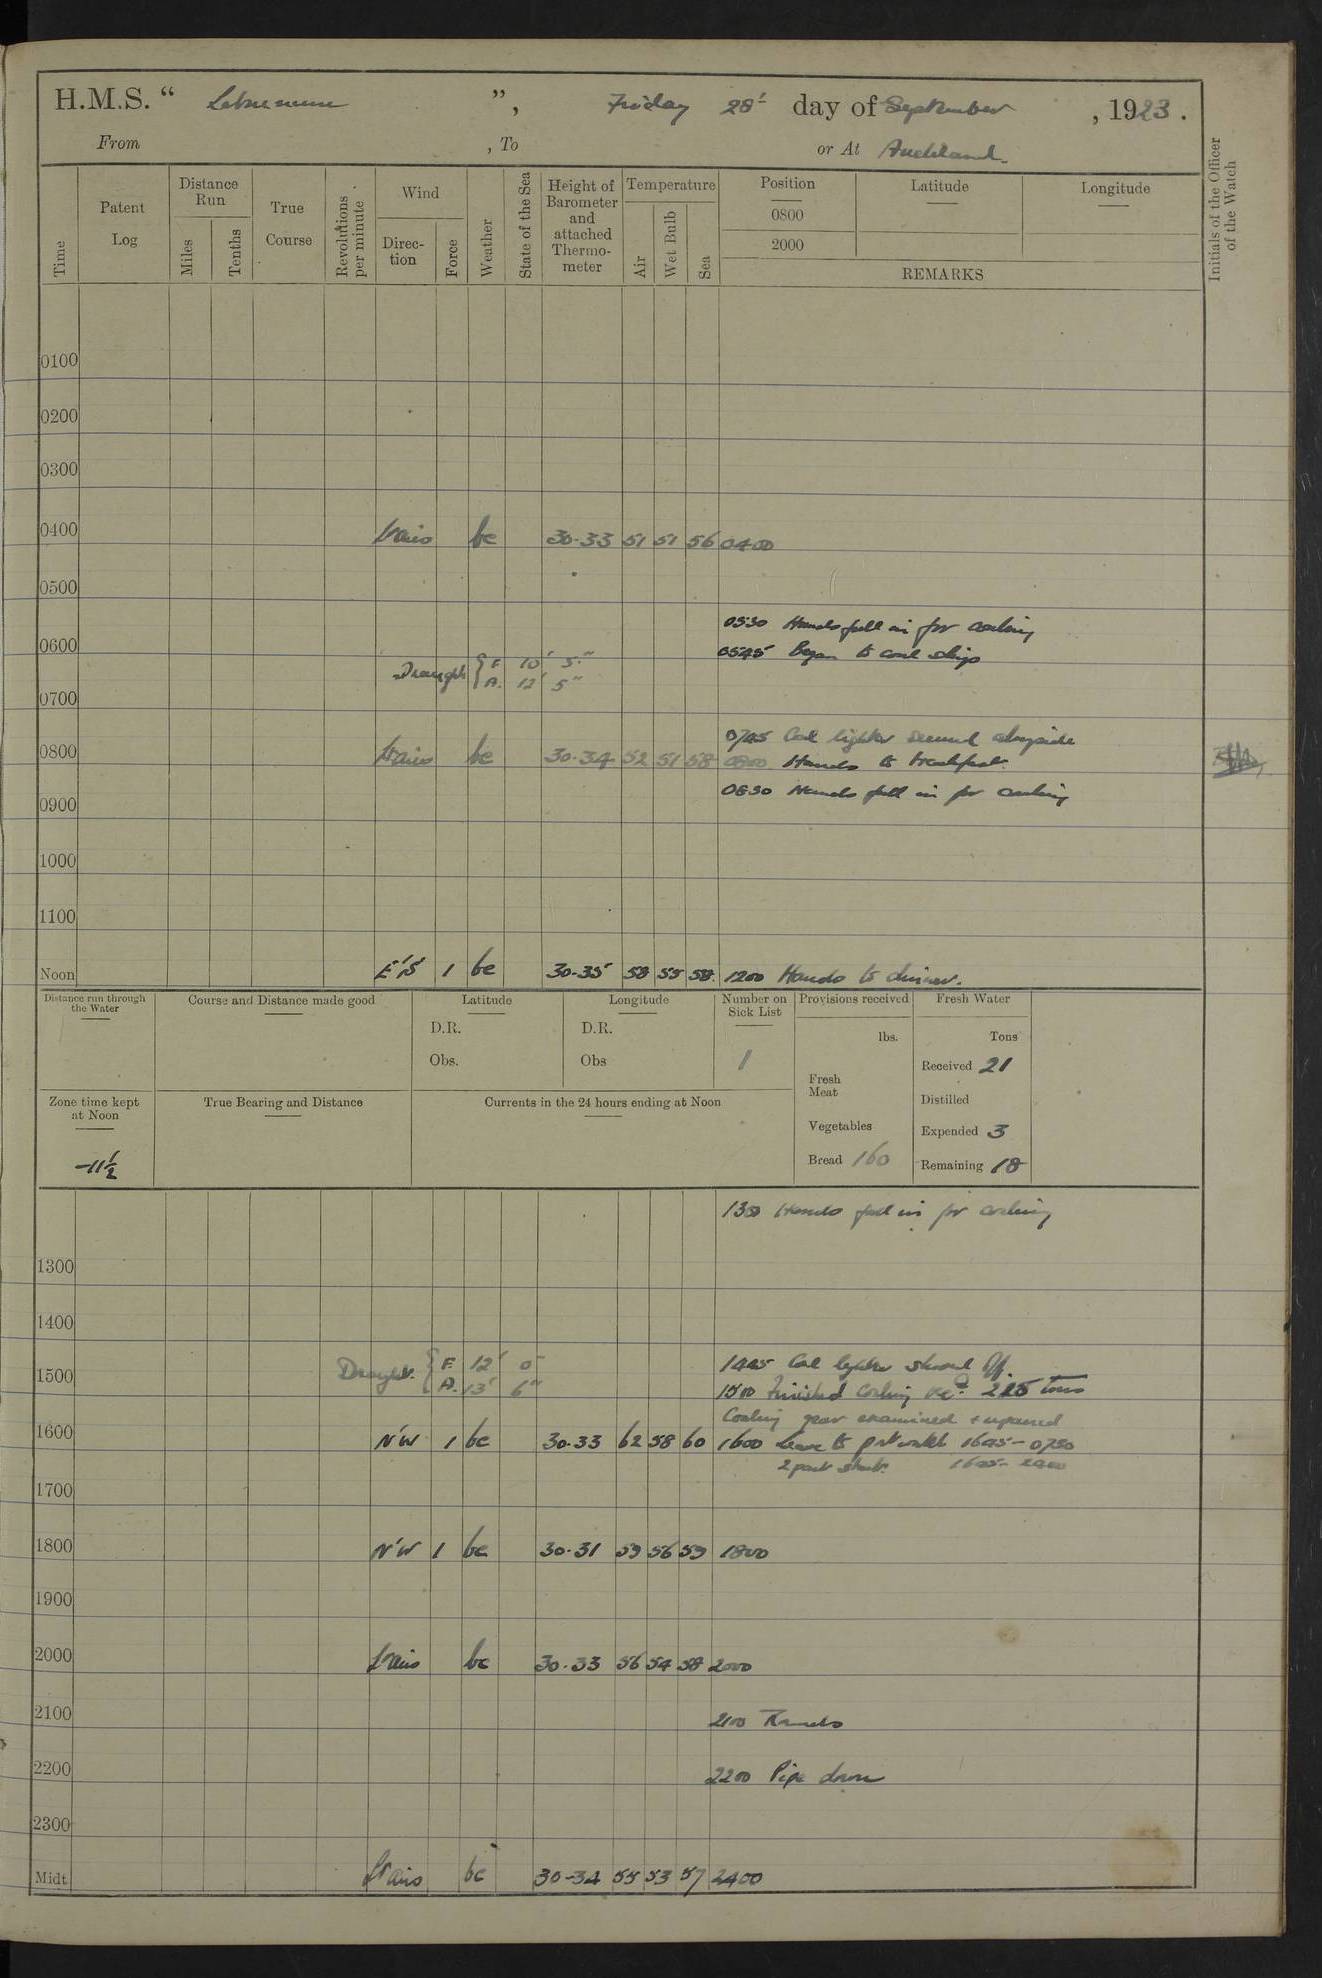 H.M.S. " Laburnum ", Friday 28th day of September, 1923.
From , To or At Auckland.
Time
Patent Log
Distance Run
Miles
Tenths
True Course
Revolutions per minute
Wind
Direc-tion
Force
Weather
State of the Sea
Height of Barometer and attached Thermo-meter
Temperature
Air
Wet Bulb
Sea
Position
0800
2000
Latitude
Longitude
REMARKS
Initials of the Officer of the Watch
0100
0200
0300
0400 bc 30.33 51 51 56 0400
0500
0530 Hands fell in for coaling
0600 0545 Began to coal ship
Draught { F. 10' 5"
A. 12' 5"
0700
0745 Coal lighter secured alongside
0800 bc 30.34 52 51 58 0800 Hands to breakfast.
0830 Hands fell in for coaling
0900
1000
1100
Noon E'S 1 bc 30.35 58 55 58 1200 Hands to dinner.
Distance run through the Water
Course and Distance made good
Latitude
D.R.
Obs.
Longitude
D.R.
Obs
Number on Sick List
1
Provisions received
lbs.
Fresh Meat
Vegetables
Bread 160
Fresh Water
Tons
Received 21
Distilled
Expended 3
Remaining 18
Zone time kept at Noon
-11½
True Bearing and Distance
Currents in the 24 hours ending at Noon
1300 Hands fell in for coaling
1300
1400
Draught { F. 12' 0"
A. 13' 6"
1445 Coal lighter shoved off.
1500 1500 Finished coaling recd. 225 tons
Coaling gear examined & repaired
1600 N'W 1 bc 30.33 62 58 60 1600 Leave to port watch 1645 - 0730
1700
1800 N'W 1 bc 30.31 59 56 59 1800
1900
2000 bc 30.33 56 54 58 2000
2100 2100 Rounds
2200 2200 Pipe down
2300
Midt bc 30.34 55 53 57 2400